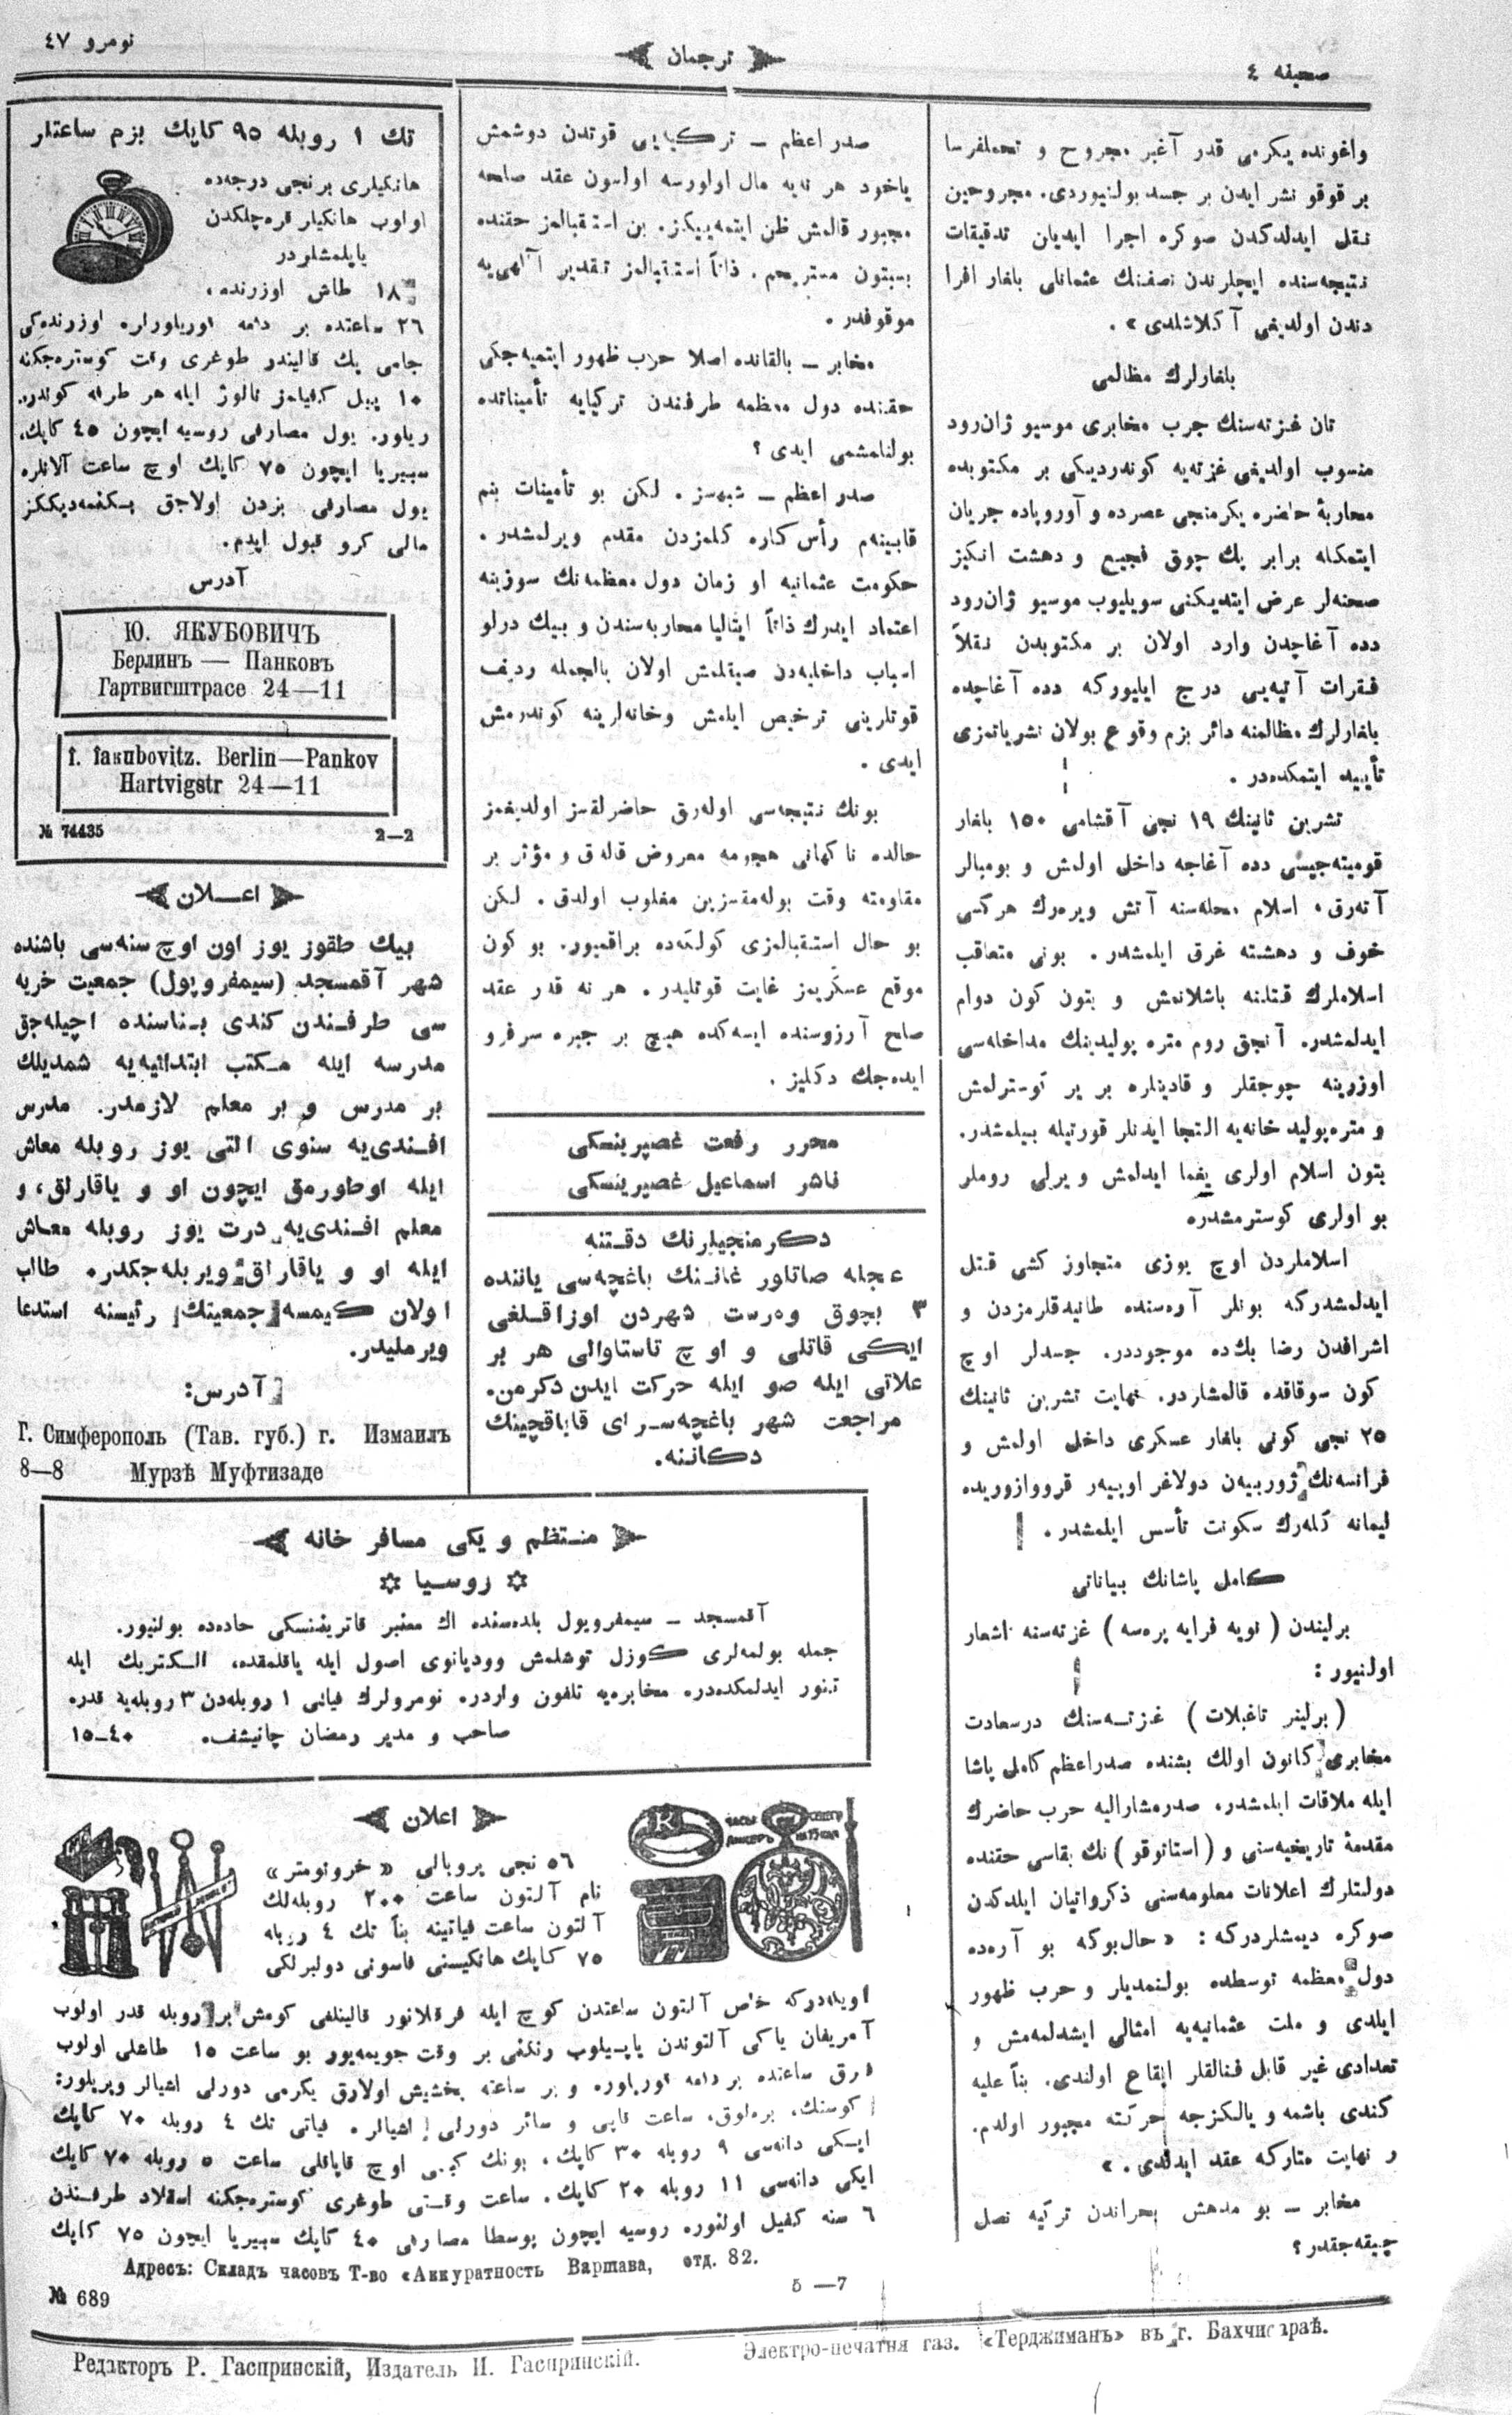 صحیفه ٤
ترجمان
نومرو ٤٧
واغونده یکرمی قدر آغیر مجروح و تحملفرسا
بر قوقو نشر ایدن بر جسد بولنیوردی. مجروحین
نقل ایدلدکدن صوکره اجرا ایدیلن تدقیقات
نتیجه‌سنده ایچلرندن نصفنك عثمانلی بلغار افرا
دندن اولدیغی آکلاشلدی».
بلغارلرك مظالمی
تان غزته‌سنك حرب مخابری موسیو ژان‌رود
منسوب اولدیغی غزته‌یه کوندردیکی بر مکتوبده
محاربهٔ حاضره یکرمنجی عصرده و آوروپاده جریان
ایتمکله برابر پك چوق فجیع و دهشت انکیز
صحنه‌لر عرض ایتدیکنی سویلیوب موسیو ژان‌رود
دده آغاچدن وارد اولان بر مکتوبدن نقلاً
فقرات آتیه‌یی درج ایلیورکه دده آغاچده
بلغارلرك مظالمنه دائر بزم وقوع بولان نشریاتمزی
تأیید ایتمکده‌در.
تشرین ثانینك ١٩ نجی آقشامی ١٥٠ بلغار
قومیته‌جیسی دده آغاجه داخل اولمش و بومبالر
آته‌رق اسلام محله‌سنه آتش ویره‌رك هرکسی
خوف و دهشته غرق ایلمشدر. بونی متعاقب
اسلاملرك قتلنه باشلانمش و بتون کون دوام
ایدلمشدر. آنجق روم متره پولیدینك مداخله‌سی
اوزرینه چوجقلر و قادینلره بر یر کوسترلمش
و متره‌پولید خانه‌یه التجا ایدنلر قورتیله بیلمشدر.
بتون اسلام اولری یغما ایدلمش و یرلی روملر
بو اولری کوسترمشدر.
اسلاملردن اوچ یوزی متجاوز کشی قتل
ایدلمشدرکه بونلر آره‌سنده طانیدقلرمزدن و
اشرافدن رضا بك‌ده موجوددر. جسدلر اوچ
کون سوقاقده قالمشلردر. نهایت تشرین ثانینك
٢٥ نجی کونی بلغار عسکری داخل اولمش و
فرانسه‌نك ژوریین دولاغر اوییه‌ر قرووازوریده
لیمانه کله‌رك سکونت تأسس ایلمشدر.
کامل پاشانك بیاناتی
برلیندن (نویه فرایه پره‌سه) غزته‌سنه اشعار
اولنیور:
(برلینر تاغبلات) غزته‌سنك درسعادت
مخابری کانون اولك بشنده صدراعظم کامل پاشا
ایله ملاقات ایلمشدر. صدرمشارالیه حرب حاضرك
مقدمهٔ تاریخیه‌سنی و (استاتوقو) نك بقاسی حقنده
دولتلرك اعلانات معلومه‌سنی ذکرواتیان ایلدکدن
صوکره دیمشلردرکه: «حال‌بوکه بو آره‌ده
دول معظمه توسطده بولنمدیلر و حرب ظهور
ایلدی و ملت عثمانیه‌یه امثالی ایشدلمه‌مش و
تعدادی غیر قابل فنالقلر ایقاع اولندی. بناً علیه
کندی باشمه و یالکزجه حرکته مجبور اولدم.
و نهایت متارکه عقد ایدلدی.»
مخابر — بو مدهش بحراندن ترکیه نصل
چیقه‌جقدر؟
صدر اعظم — ترکیایی قوتدن دوشمش
یاخود هر نه‌یه مال اولورسه اولسون عقد صلحه
مجبور قالمش ظن ایتمه‌ییکز. بن استقبالمز حقنده
بسبتون مستریحم. ذاتاً استقبالمز تقدیر آلهی‌یه
موقوفدر.
مخابر — بالقانده اصلا حرب ظهور ایتمیه‌جکی
حقنده دول معظمه طرفندن ترکیایه تأمیناتده
بولنامشمی ایدی؟
صدر اعظم — شبهه‌سز. لکن بو تأمینات بنم
قابینه‌م رأس کاره کلمزدن مقدم ویرلمشدر.
حکومت عثمانیه او زمان دول معظمه‌نك سوزینه
اعتماد ایدرك ذاتاً ایتالیا محاربه‌سندن و بیك درلو
اسباب داخلیه‌دن صیقلمش اولان بالجمله ردیف
قوتلرینی ترخیص ایلمش وخانه‌لرینه کوندرمش
ایدی.
بونك نتیجه‌سی اوله‌رق حاضرلقسز اولدیغمز
حالده ناکهانی هجومه معروض قالدق و مؤثر بر
مقاومته وقت بوله‌مقسزین مغلوب اولدق. لکن
بو حال استقبالمزی کولکه‌ده براقمیور. بو کون
موقع عسکریمز غایت قوتلیدر. هر نه قدر عقد
صلح آرزوسنده ایسه‌کده هیچ بر جبره سرفرو
ایده‌جك دکلیز.
محرر رفعت غصپرینسکی
ناشر اسماعیل غصپرینسکی
دکرمنجیلرنك دقتنه
عجله صاتلور غاننك باغچه‌سی یاننده
٣ بچوق وه‌رست شهردن اوزاقلغی
ایکی قاتلی و اوچ تاستاوالی هر بر
علاتی ایله صو ایله حرکت ایدن دکرمن.
مراجعت شهر باغچه‌سرای قاباقچینك
دکاننه.
تك ١ روبله ٩٥ کاپك بزم ساعتلر
هانکیلری برنجی درجه‌ده
اولوب هانکیلر قره‌چلکدن
یاپلمشلردر
١٨ طاش اوزرنده،
٣٦ ساعتده بر دفعه قوریلورلر. اوزرنده‌کی
جامی پك قالیندر طوغری وقت کوستره‌جکنه
١٠ ییل کفیلمز تالوژ ایله هر طرفه کوندر.
ریلور. یول مصارفی روسیه ایچون ٤٥ کاپك،
سیبریا ایچون ٧٥ کاپك اوچ ساعت آلانلره
یول مصارفی بزدن اولاجق بکنمه‌دیککز
مالی کرو قبول ایدم.
آدرس
Ю. ЯКУБОВИЧЪ
Берлинъ — Панковъ
Гартвигштрасе 24—11
I. Iакubovitz. Berlin—Pankov
Hartvigstr 24—11
№ 74435 2—2
اعـلان
بیك طقوز یوز اون اوچ سنه‌سی باشنده
شهر آقمسجد (سیمفروپول) جمعیت خریه
سی طرفندن کندی بناسنده اچیله‌جق
مدرسه ایله مکتب ابتدائیه‌یه شمدیلك
بر مدرس و بر معلم لازمدر. مدرس
افندی‌یه سنوی التی یوز روبله معاش
ایله اوطورمق ایچون او و یاقارلق، و
معلم افندی‌یه درت یوز روبله معاش
ایله او و یاقارلق ویریله‌جکدر. طالب
اولان کیمسه جمعیتك رئیسنه استدعا
ویرملیدر.
آدرس:
Г. Симферополь (Тав. губ.) г. Измаилъ
Мурзѣ Муфтизаде 8—8
منتظم و یکی مسافر خانه
روسیا
آقمسجد — سیمفروپول بلده‌سنده اك معتبر قاتریننسکی جاده‌ده بولنیور.
جمله بولمه‌لری کوزل توشلمش وودیانوی اصول ایله یاقلمقده، الکتریك ایله
تنور ایدلمکده‌در. مخابره‌یه تلفون واردر. نومرولرك فیاتی ١ روبله‌دن ٣ روبله‌یه قدر.
صاحب و مدیر رمضان چانیشف. ٤٠—١٥
اعلان
٥٦ نجی پروبالی «خرونومتر»
نام آلتون ساعت ٢٠٠ روبله‌لك
آلتون ساعت فیاتینه بناً تك ٤ روبله
٧٥ کاپك هانکیسنی فاسونی دولبرلکی
اویله‌درکه خالص آلتون ساعتدن کوچ ایله فرقلانور قالینلغی کومش بر روبله قدر اولوب
آمریقان یاکی آلتوندن یاپیلوب رنکنی بر وقت جویمه‌یور بو ساعت ١٥ طاعلی اولوب
قرق ساعتده بر دفعه قوریلور. و بر ساعته بخشیش اولارق یکرمی دورلی اشیالر ویریلور:
کوستك، بره‌لوق، ساعت قاپی و سائر دورلی اشیالر. فیاتی تك ٤ روبله ٧٠ کاپك
ایکی دانه‌سی ٩ روبله ٣٠ کاپك، بونك کبی اوچ قاپاقلی ساعت ٥ روبله ٧٠ کاپك
ایکی دانه‌سی ١١ روبله ٢٠ کاپك. ساعت وقتی طوغری کوستره‌جکنه اسقلاد طرفندن
٦ سنه کفیل اولنور. روسیه ایچون پوسطا مصارفی ٤٠ کاپك سیبریا ایچون ٧٥ کاپك
Адресъ: Складъ часовъ Т-во «Аккуратность Варшава, отд. 82.
№ 689 5—7
Редакторъ Р. Гаспринскій, Издатель И. Гаспринскій.
Электро-печатня газ. «Терджиманъ» въ г. Бахчисараѣ.